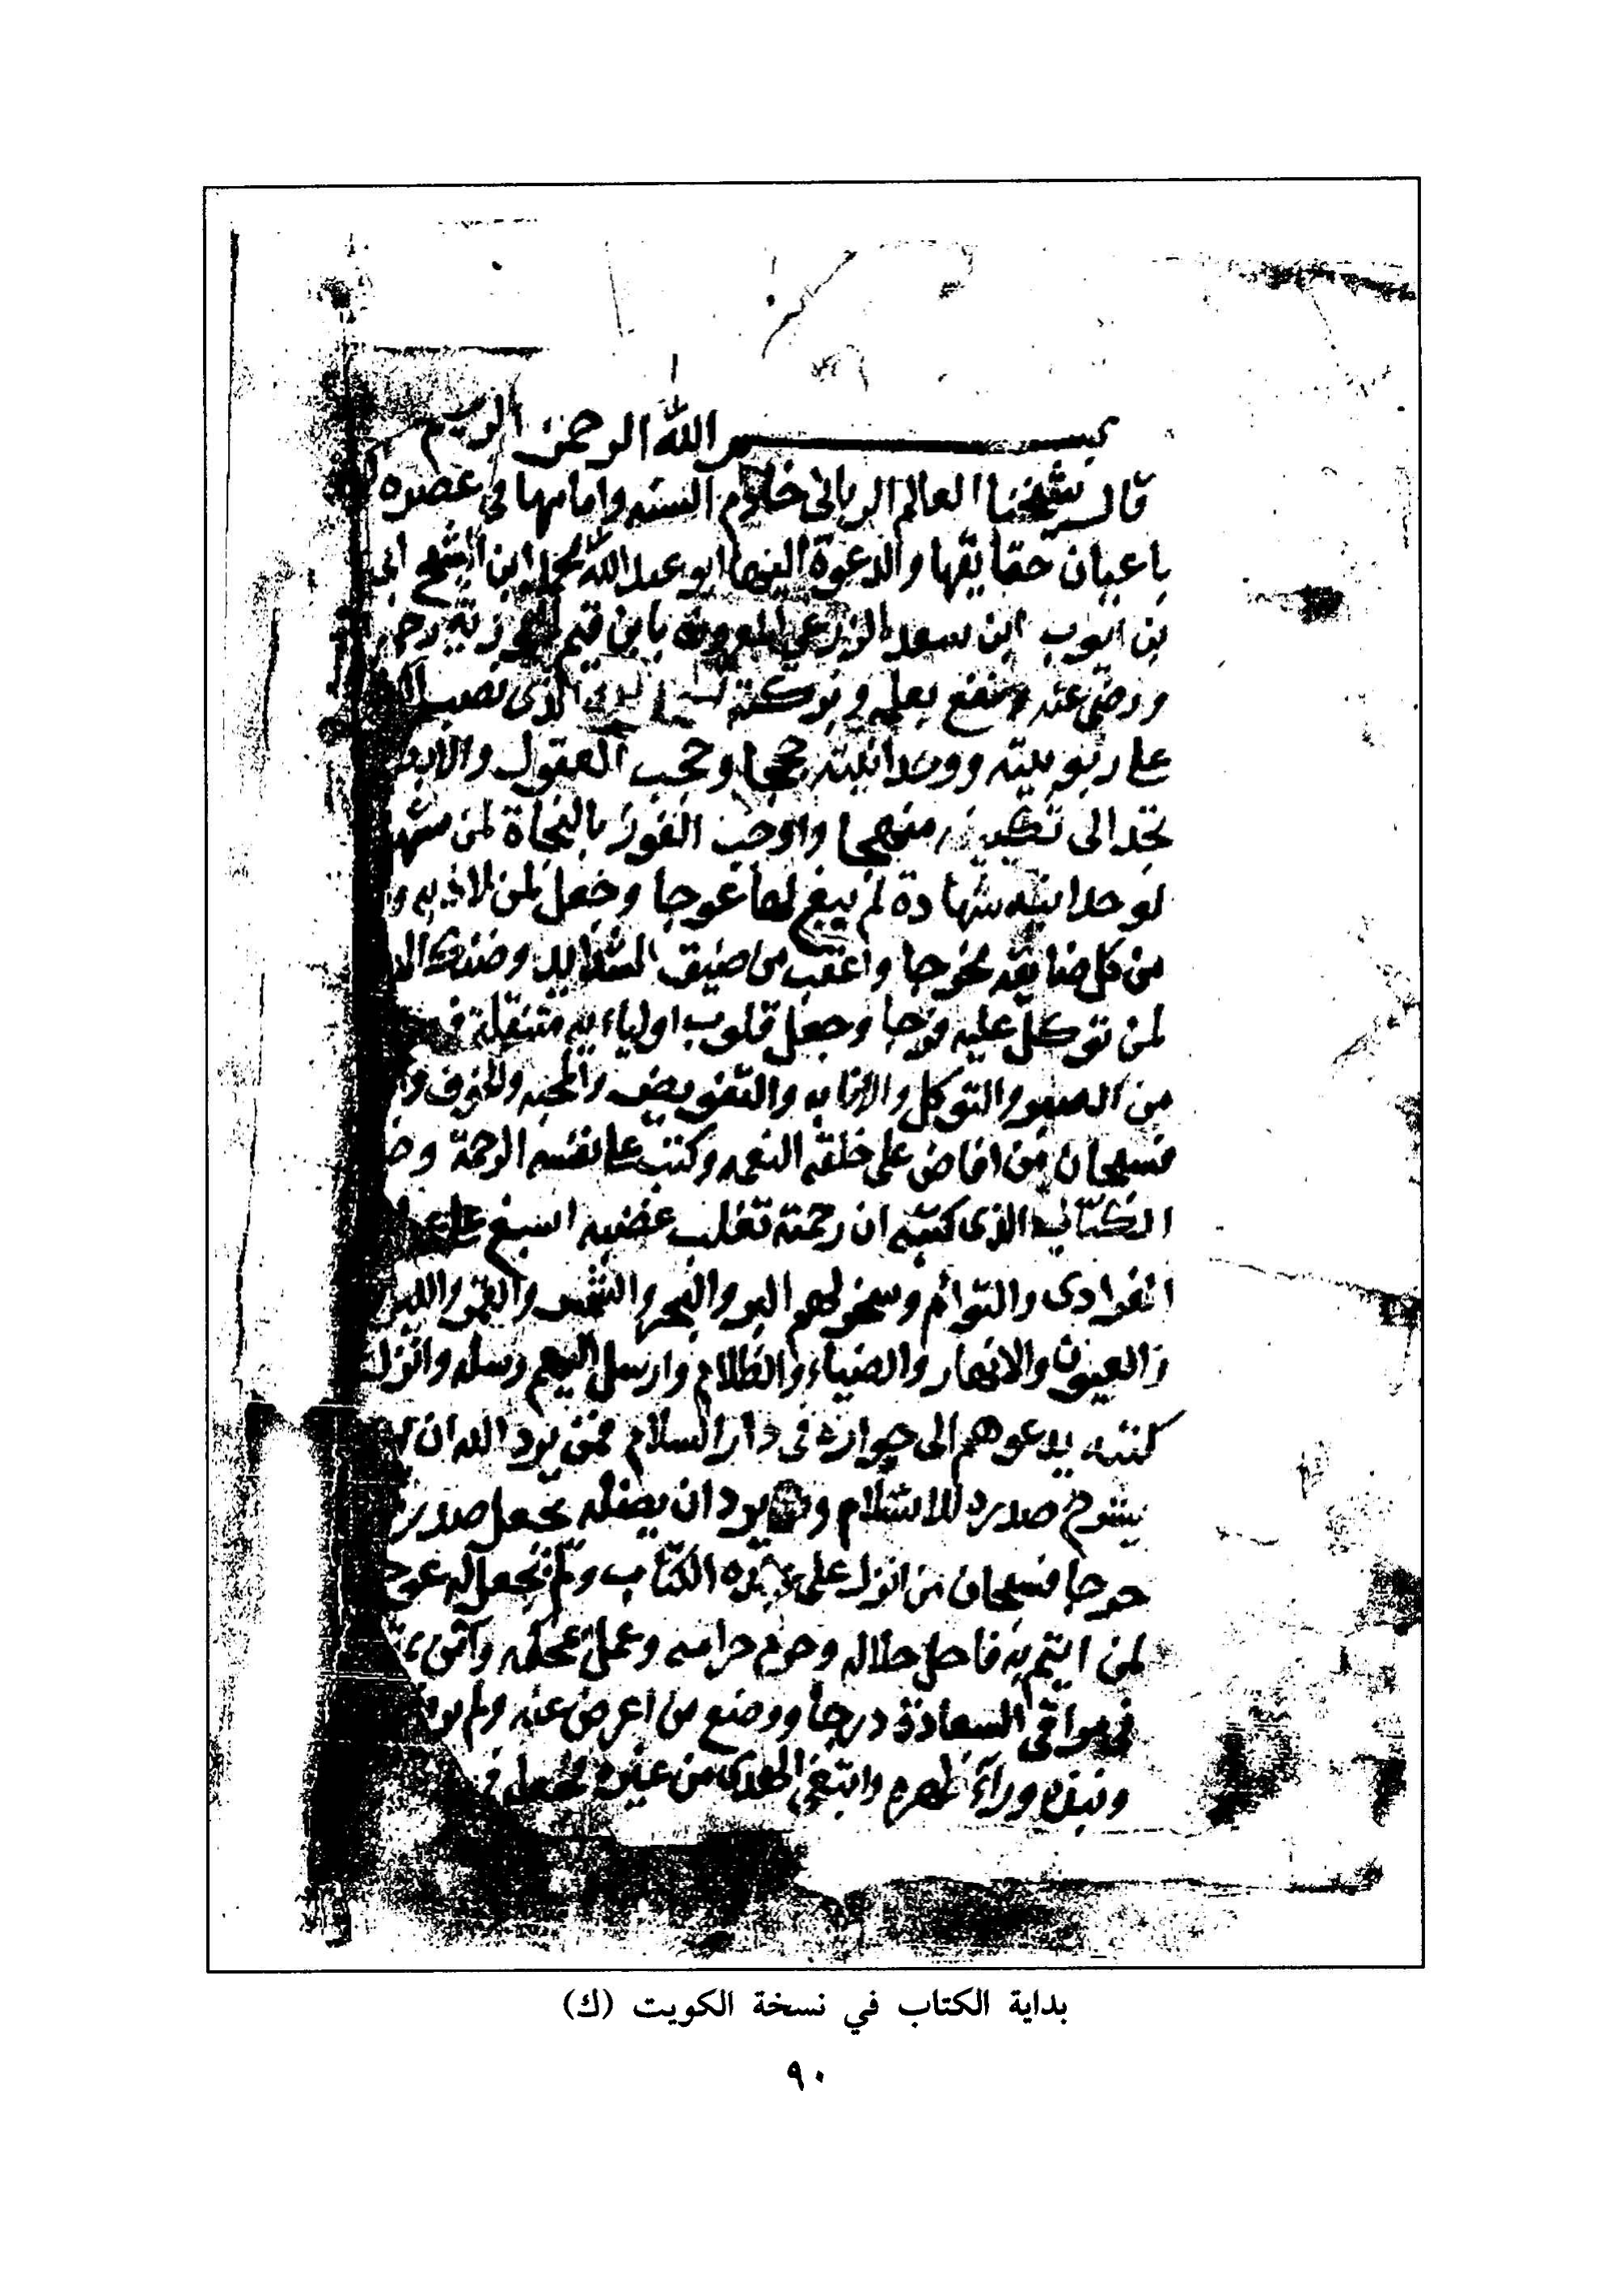 بسم الله الرحمن الرحيم
قال شيخنا العالم الرباني خادم السنه وامامها في عصره
باعيان حقايقها والدعوة اليها ابو عبد الله محمد ابن الشيخ ابي
بن ايوب ابن سعد الزرعي المعروف بابن قيم الجوزية رحمه
ورضي عنه ونفع بعلمه وبركته الذي نصب
على ربوبيته ووحدانيته حججا وحجب العقول
تجد الى منهجا واوجب الفوز بالنجاة لمن شهد
لوحدانيته شهادة لم يبغ لها عوجا وجعل لمن لاذ به و
من كل ضايقه مخرجا واعقب من ضيق الشدايد وضنك
لمن توكل عليه فرجا وجعل قلوب اوليايه متنقلة في
من الصبر والتوكل والانابه والتفويض والمحبه والخوف و
فسبحان من افاض على خلقه النعمه وكتب على نفسه الرحمة
الكتاب الذي كتبه ان رحمته تغلب غضبه اسبغ على
الفرادى والتوأم وسخر لهم البر والبحر والشمس والقمر والليل
والعيون والانهار والضياء والظلام وارسل اليهم رسله وانزل
كتبه يدعوهم الى جواره في دار السلام فمن يرد الله ان
يشرح صدره للاسلام ومن يرد ان يضله يجعل صدره
حرجا فسبحان من انزل على عبده الكتاب ولم يجعل له عوجا
لمن ايتم به فاحل حلاله وحرم حرامه وعمل بمحكمه وآمن
في مراقي السعادة درجا ووضع من اعرض عنه ولم
ونبذه ورآء ظهره وابتغى الهدى من غيره فجعله في
بداية الكتاب في نسخة الكويت (ك)
٩٠